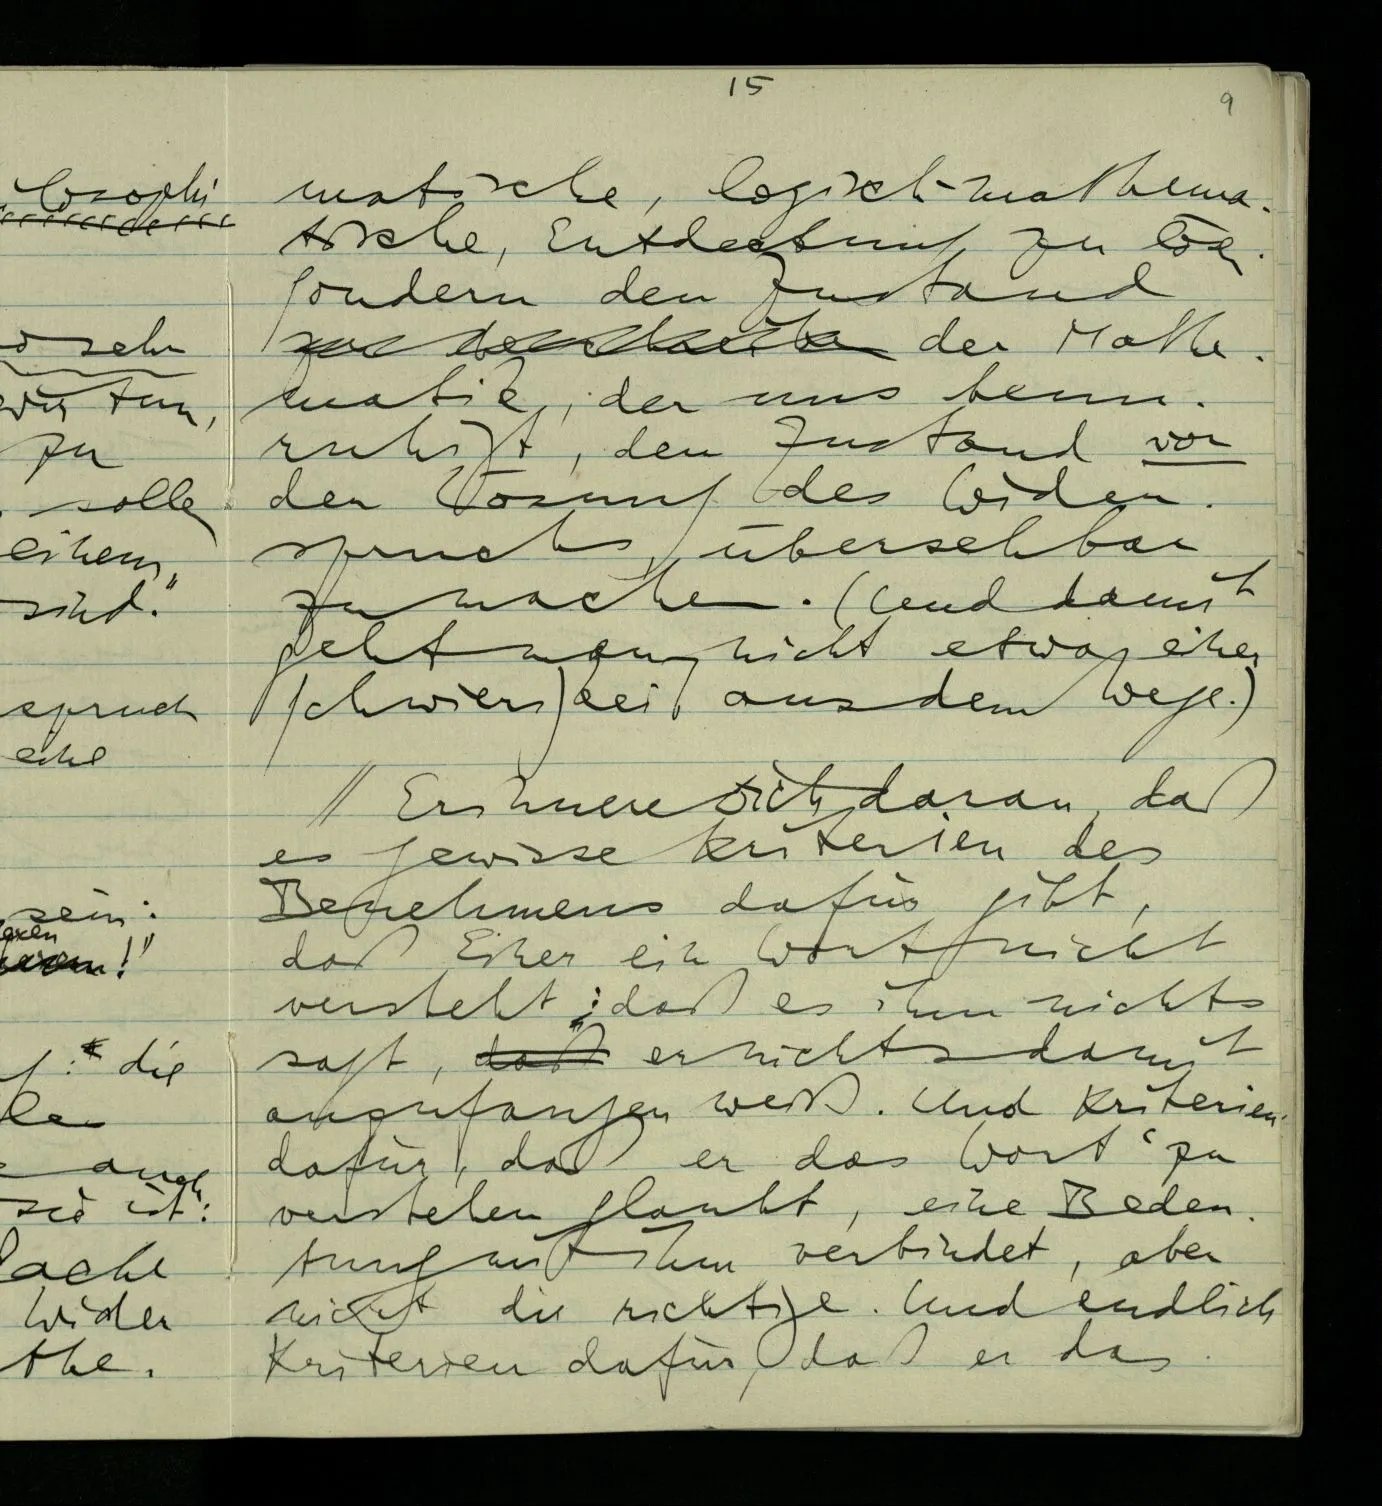 15
9
matische, logisch-mathema-
tische, Entdeckung zu lösen
sondern den Zustand
der Mathe-
matik, der uns beun-
ruhigt, den Zustand vor
der Lösung des Wider-
spruchs, übersehbar
zu machen. (Und damit
geht man nicht etwa einer
Schwierigkeit aus dem Wege.)
// Erinnere dich daran, daß
es gewisse Kriterien des
Benehmens dafür gibt,
daß Einer ein Wort nicht
versteht: daß es ihm nichts
sagt, daß er nichts damit
anzufangen weiß. Und Kriterien
dafür, daß er das Wort 'zu
verstehen glaubt, eine Bedeu-
tung mit ihm verbindet, aber
nicht die richtige. Und endlich
Kriterien dafür, daß er das
losophi
sehr
wir tun,
zu
solle
einem
sind."
spruch
eine
sein:
: die
auch
ist:
Wider
the.